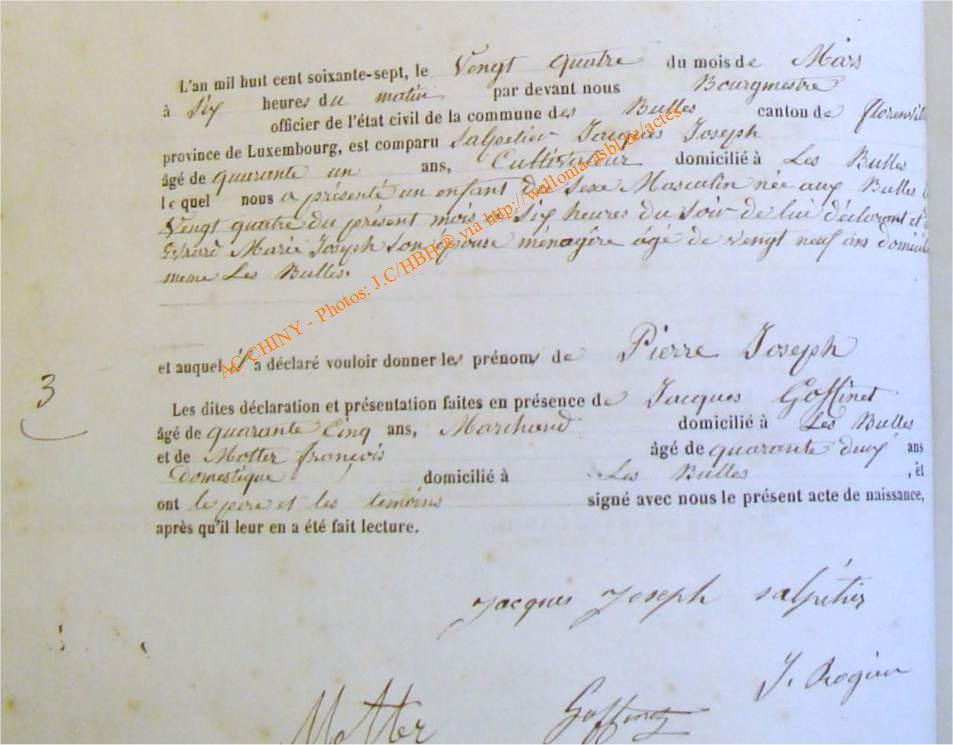 L'an mil huit cent soixante-sept, le Vengt quatre du mois de Mars
à Six heures du matin par devant nous Bourgmestre
officier de l'état civil de la commune des Bulles canton de florenvil
province de Luxembourg, est comparu Salpetier Jacques Joseph
âgé de quarante un ans, Cultivateur domicilié à Les Bulles
lequel nous a présenté un enfant du Sexe Masculin née aux Bulles
Vengt quatre du présent mois Six heures du Soir de lui déclarant et
Marie Joseph Son épouse ménagère âgé de vengt neuf ans domicil
meme Les Bulles.
et auquel il a déclaré vouloir donner les prénoms de Pierre Joseph
3
Les dites déclaration et présentation faites en présence de Jacques Goffinet
âgé de quarante Cinq ans, Marchand domicilié à Les Bulles
et de Motter françois âgé de quarante deux ans
Domestique domicilié à Les Bulles , et
ont le pere et les temoins signé avec nous le présent acte de naissance,
après qu'il leur en a été fait lecture.
Jacques Joseph Salpétier
J.
Motter Goffinet
AC CHINY - Photos: J.C/HBH® via http://wallonia-asbl.be/actes